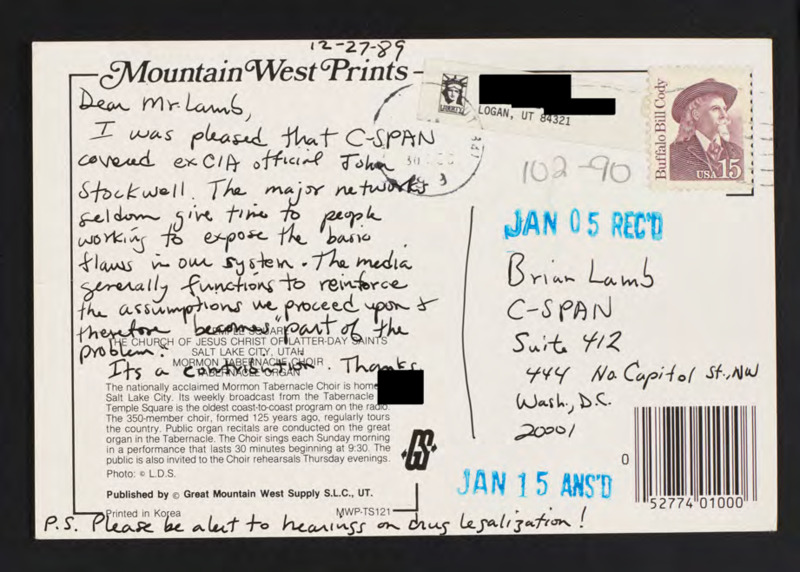 12-27-89
Mountain West Prints
Dear Mr. Lamb,
I was pleased that C-SPAN
covered ex CIA official John
Stockwell. The major networks
seldom give time to people
working to expose the basic
flaws in our system. The media
generally functions to reinforce
the assumptions we proceed upon &
therefore becomes "part of the
problem."
Its a contribution. Thanks,
TEMPLE SQUARE
THE CHURCH OF JESUS CHRIST OF LATTER-DAY SAINTS
SALT LAKE CITY, UTAH
MORMON TABERNACLE CHOIR
TABERNACLE ORGAN
The nationally acclaimed Mormon Tabernacle Choir is home
Salt Lake City. Its weekly broadcast from the Tabernacle
Temple Square is the oldest coast-to-coast program on the radio.
The 350-member choir, formed 125 years ago, regularly tours
the country. Public organ recitals are conducted on the great
organ in the Tabernacle. The Choir sings each Sunday morning
in a performance that lasts 30 minutes beginning at 9:30. The
public is also invited to the Choir rehearsals Thursday evenings.
Photo: © L.D.S.
Published by © Great Mountain West Supply S.L.C., UT.
Printed in Korea
MWP-TS121
P.S. Please be alert to hearings on drug legalization!
LIBERTY
LOGAN, UT 84321
Buffalo Bill Cody
USA 15
102-90
JAN 05 REC'D
Brian Lamb
C-SPAN
Suite 412
444 No. Capitol St., NW
Wash., D.C.
20001
JAN 15 ANS'D
GS
0
52774 01000